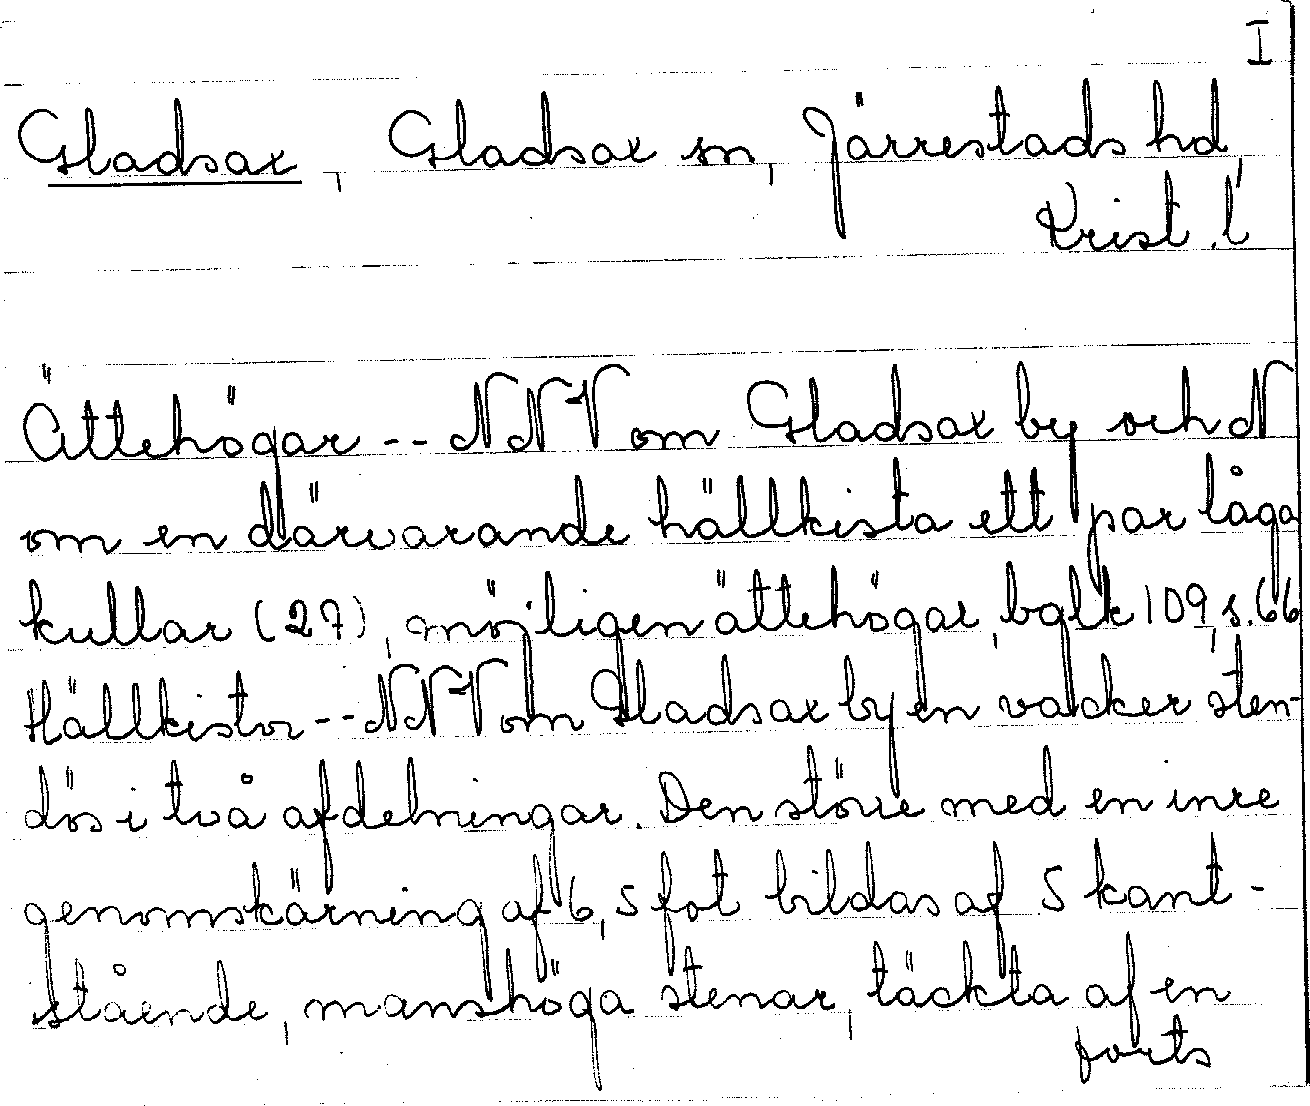 I
Gladsax, Gladsax sn, Järrestads hd,
Krist. l
Ättehögar -- NNV om Gladsax by och N
om en därvarande hällkista ett par låga
kullar (27), möjligen ättehögar, bglk 109, s. 66
Hällkistor -- NNV om Gladsax by en vacker sten-
dös i två afdelningar. Den större med en inre
genomskärning af 6,5 fot bildas af 5 kant-
stående, manshöga stenar, täckta af en
forts